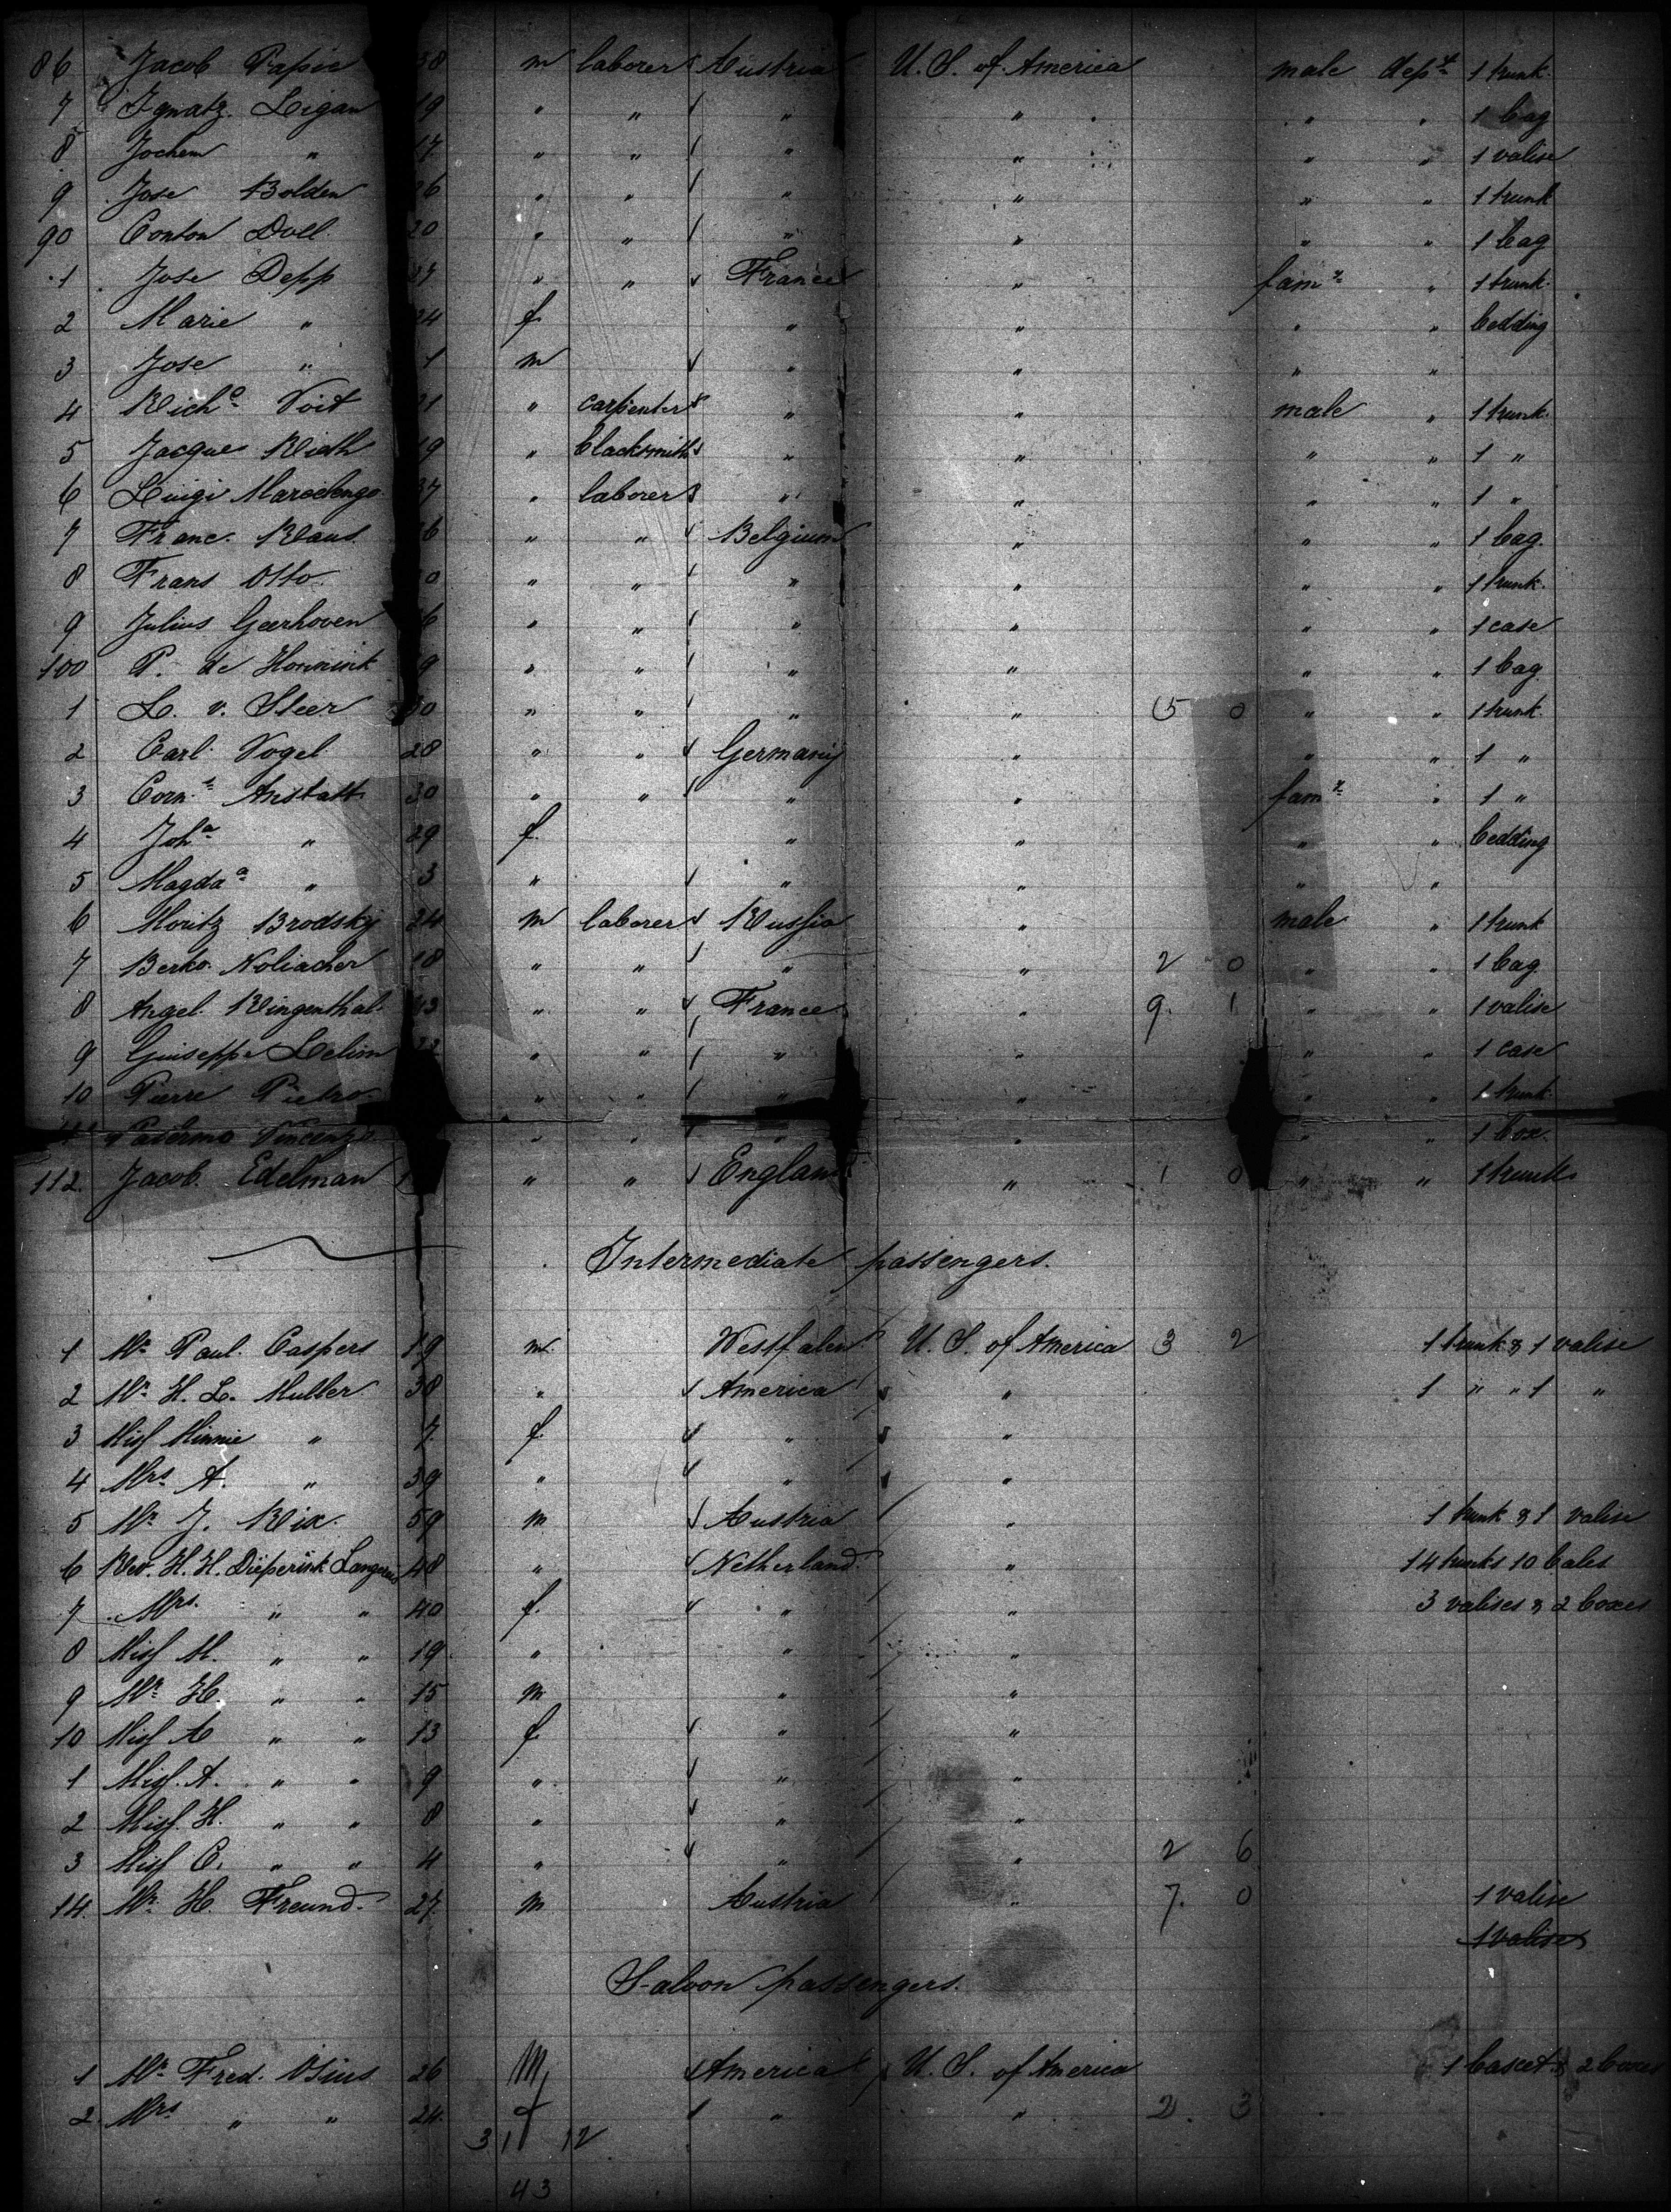 86 Jacob Papic 38 m laborer Austria U. S. of America male dept 1 trunk.
7 Ignatz Ligan 19 " " " " " " 1 bag
8 Jochem " 17 " " " " " " 1 valise
9 Jose Bolden 26 " " " " " " 1 trunk
90 Conton Doll 20 " " " " " " 1 bag
1 Jose Depp 27 " " France " famy " 1 trunk.
2 Marie " 24 f. " " " " bedding
3 Jose " 1 m " " " "
4 Richd Voit 21 " carpenter " " male " 1 trunk.
5 Jacques Rieth 19 " blacksmith " " " " 1 "
6 Luigi Marcelengo 37 " laborer " " " " 1 "
7 Franc. Raus 6 " " Belgium " " " 1 bag.
8 Frans Otto 0 " " " " " " 1 trunk.
9 Julius Geerhoven 6 " " " " " " 1 case
100 P. de Honnink 9 " " " " " " 1 bag
1 L. v. Steer 30 " " " " 5 0 " " 1 trunk
2 Carl Vogel 28 " " Germany " " " 1 "
3 Corns Anstatt 30 " " " " famy " 1 "
4 Joha " 29 f. " " " " bedding
5 Magdaa " 3 " " " " "
6 Moritz Brodsky 24 m laborer Russia " male " 1 trunk
7 Berko Noliacher 18 " " " " 2 0 " " 1 bag
8 Angel. Ringenthal 43 " " France " 9. 1 " " 1 valise
9 Guiseppe Lelim 22 " " " " " " 1 case
10 Pierre Pietro " " " " " " 1 trunk.
Palermo Vincenzo " " " " " " 1 box.
112. Jacob Edelman 1 " " England " 1 0 " " 1 trunk
Intermediate passengers.
1 Mr Paul Caspers 19 m. Westfalen U. S. of America 3 2 1 trunk & 1 valise
2 Mr H. L. Muller 38 " America " 1 " " 1 "
3 Miss Minnie " 7. f. " "
4 Mrs A. " 39 " " "
5 Mr J. Rix. 59 m Austria " 1 trunk & 1 valise
6 Rev. H. H. Dieperink Langereis 48 " Netherland " 14 trunks 10 bales
7 Mrs. " " 40 f. " " 3 valises & 2 boxes
8 Miss M. " " 19 " " "
9 Mr H. " " 15 m " "
10 Miss A " " 13 f. " "
1 Miss. A. " " 9 " " "
2 Miss. H. " " 8 " " "
3 Miss C. " " 4 " " " 2 6
14. Mr H. Freund. 27. m Austria " 7. 0 1 valise
1 valise
Saloon passengers.
1 Mr Fred. Osius 26 M America U. S. of America 1 bascet & 2 boxes
2. Mrs " " 24. f " " 2. 3
31 12
43